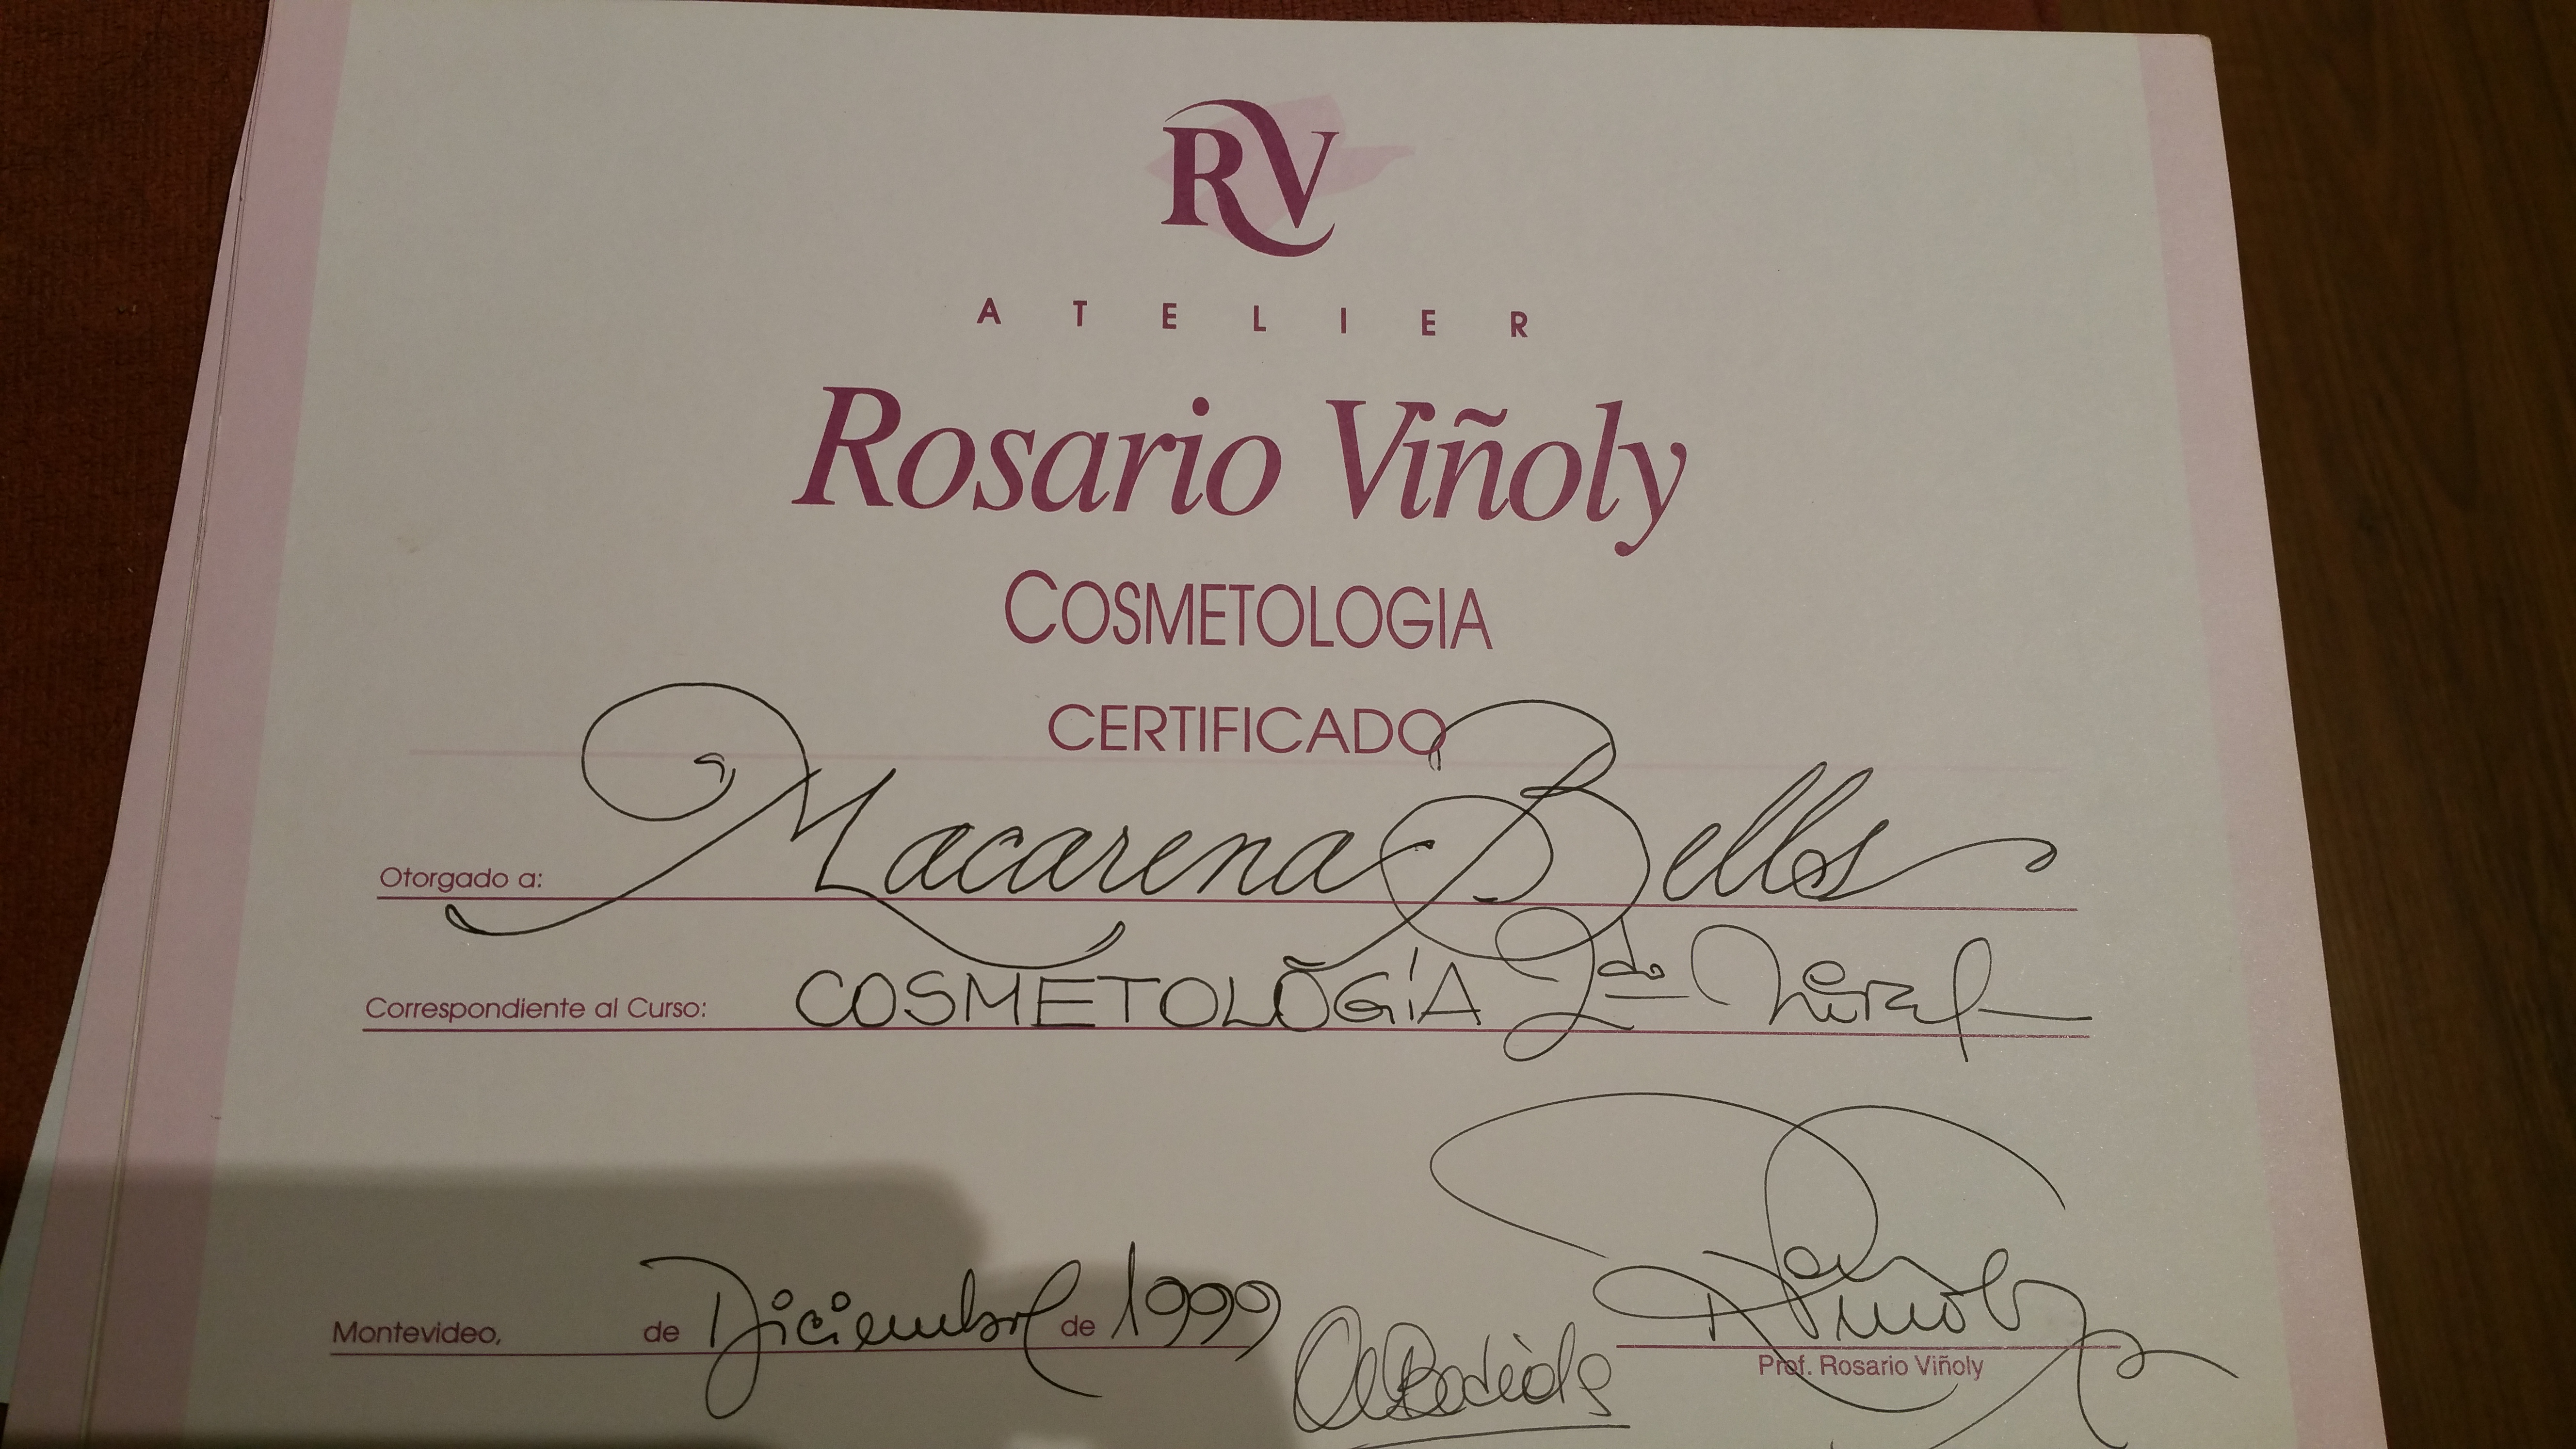 RV
ATELIER
Rosario Viñoly
COSMETOLOGIA
CERTIFICADO
Otorgado a: Macarena Bellos
Correspondiente al Curso: COSMETOLOGÍA 2do Nivel
Montevideo, de Diciembre de 1999
Prof. Rosario Viñoly